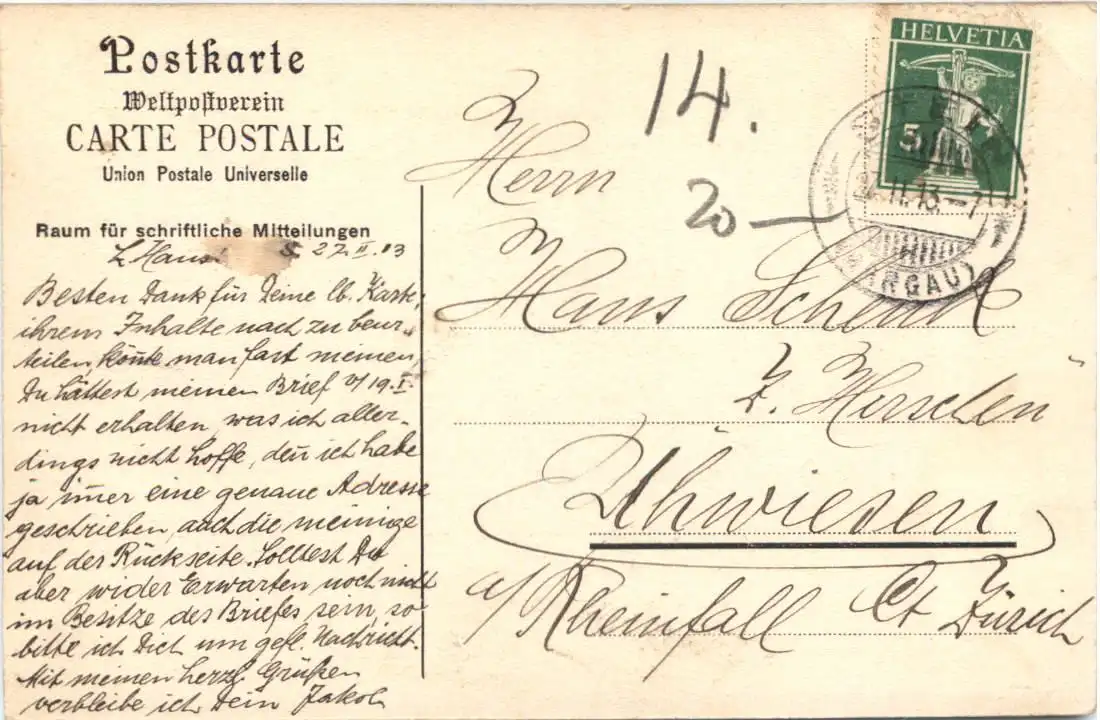 Postkarte
Weltpostverein
CARTE POSTALE
Union Postale Universelle
Raum für schriftliche Mitteilungen
27.II.13
Besten Dank für Deine lb. Karte,
ihrem Inhalte nach zu beur-
teilen, könte man fast meinen,
Du hättest meinen Brief v/19.I.
nicht erhalten, was ich aller-
dings nicht hoffe, den ich habe
ja imer eine genaue Adresse
geschrieben, auch die meinige
auf der Rückseite. Solltest Du
aber wider Erwarten noch nicht
im Besitze des Briefes sein, so
bitte ich Dich um gefl. Nachricht.
Mit meinen herzl. Grüßen
verbleibe ich Dein Jakob
14.
20
HELVETIA
5
27.II.13.-7
(AARGAU)
Herrn
Hans Schenk
z. Hirschen
Uhwiesen
a/Rheinfall Ct Zürich